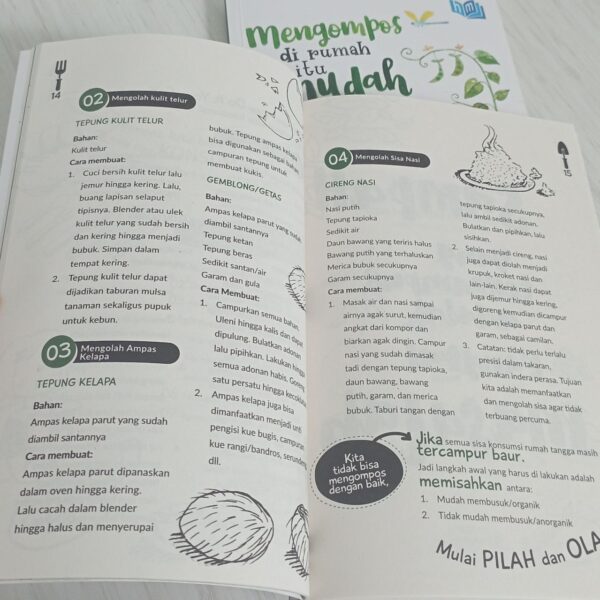 Mengompos
di rumah
itu
mudah
14
02 Mengolah kulit telur
TEPUNG KULIT TELUR
Bahan:
Kulit telur
Cara membuat:
1. Cuci bersih kulit telur lalu
jemur hingga kering. Lalu,
buang lapisan selaput
tipisnya. Blender atau ulek
kulit telur yang sudah bersih
dan kering hingga menjadi
bubuk. Simpan dalam
tempat kering.
2. Tepung kulit telur dapat
dijadikan taburan mulsa
tanaman sekaligus pupuk
untuk kebun.
03 Mengolah Ampas
Kelapa
TEPUNG KELAPA
Bahan:
Ampas kelapa parut yang sudah
diambil santannya
Cara membuat:
Ampas kelapa parut dipanaskan
dalam oven hingga kering.
Lalu cacah dalam blender
hingga halus dan menyerupai
bubuk. Tepung ampas kelapa
bisa digunakan sebagai bahan
campuran tepung untuk
membuat kukis.
GEMBLONG/GETAS
Bahan:
Ampas kelapa parut yang sudah
diambil santannya
Tepung ketan
Tepung beras
Sedikit santan/air
Garam dan gula
Cara Membuat:
1. Campurkan semua bahan.
Uleni hingga kalis dan dapat
dipulung. Bulatkan adonan
lalu pipihkan. Lakukan hingga
semua adonan habis. Goreng
satu persatu hingga kecoklatan
2. Ampas kelapa juga bisa
dimanfaatkan menjadi unti
pengisi kue bugis, campuran
kue rangi/bandros, serundeng
dll.
15
04 Mengolah Sisa Nasi
CIRENG NASI
Bahan:
Nasi putih
Tepung tapioka
Sedikit air
Daun bawang yang teriris halus
Bawang putih yang terhaluskan
Merica bubuk secukupnya
Garam secukupnya
Cara membuat:
1. Masak air dan nasi sampai
airnya agak surut, kemudian
angkat dari kompor dan
biarkan agak dingin. Campur
nasi yang sudah dimasak
tadi dengan tepung tapioka,
daun bawang, bawang
putih, garam, dan merica
bubuk. Taburi tangan dengan
tepung tapioka secukupnya,
lalu ambil sedikit adonan.
Bulatkan dan pipihkan, lalu
sisihkan.
2. Selain menjadi cireng, nasi
juga dapat diolah menjadi
krupuk, kroket nasi dan
lain-lain. Kerak nasi dapat
juga dijemur hingga kering,
digoreng kemudian dicampur
dengan kelapa parut dan
garam, sebagai camilan.
3. Catatan: tidak perlu terlalu
presisi dalam takaran,
gunakan indera perasa. Tujuan
kita adalah memanfaatkan
dan mengolah sisa agar tidak
terbuang percuma.
Kita
tidak bisa
mengompos
dengan baik,
Jika semua sisa konsumsi rumah tangga masih
tercampur baur.
Jadi langkah awal yang harus di lakukan adalah
memisahkan antara:
1. Mudah membusuk/organik
2. Tidak mudah membusuk/anorganik
Mulai PILAH dan OLA